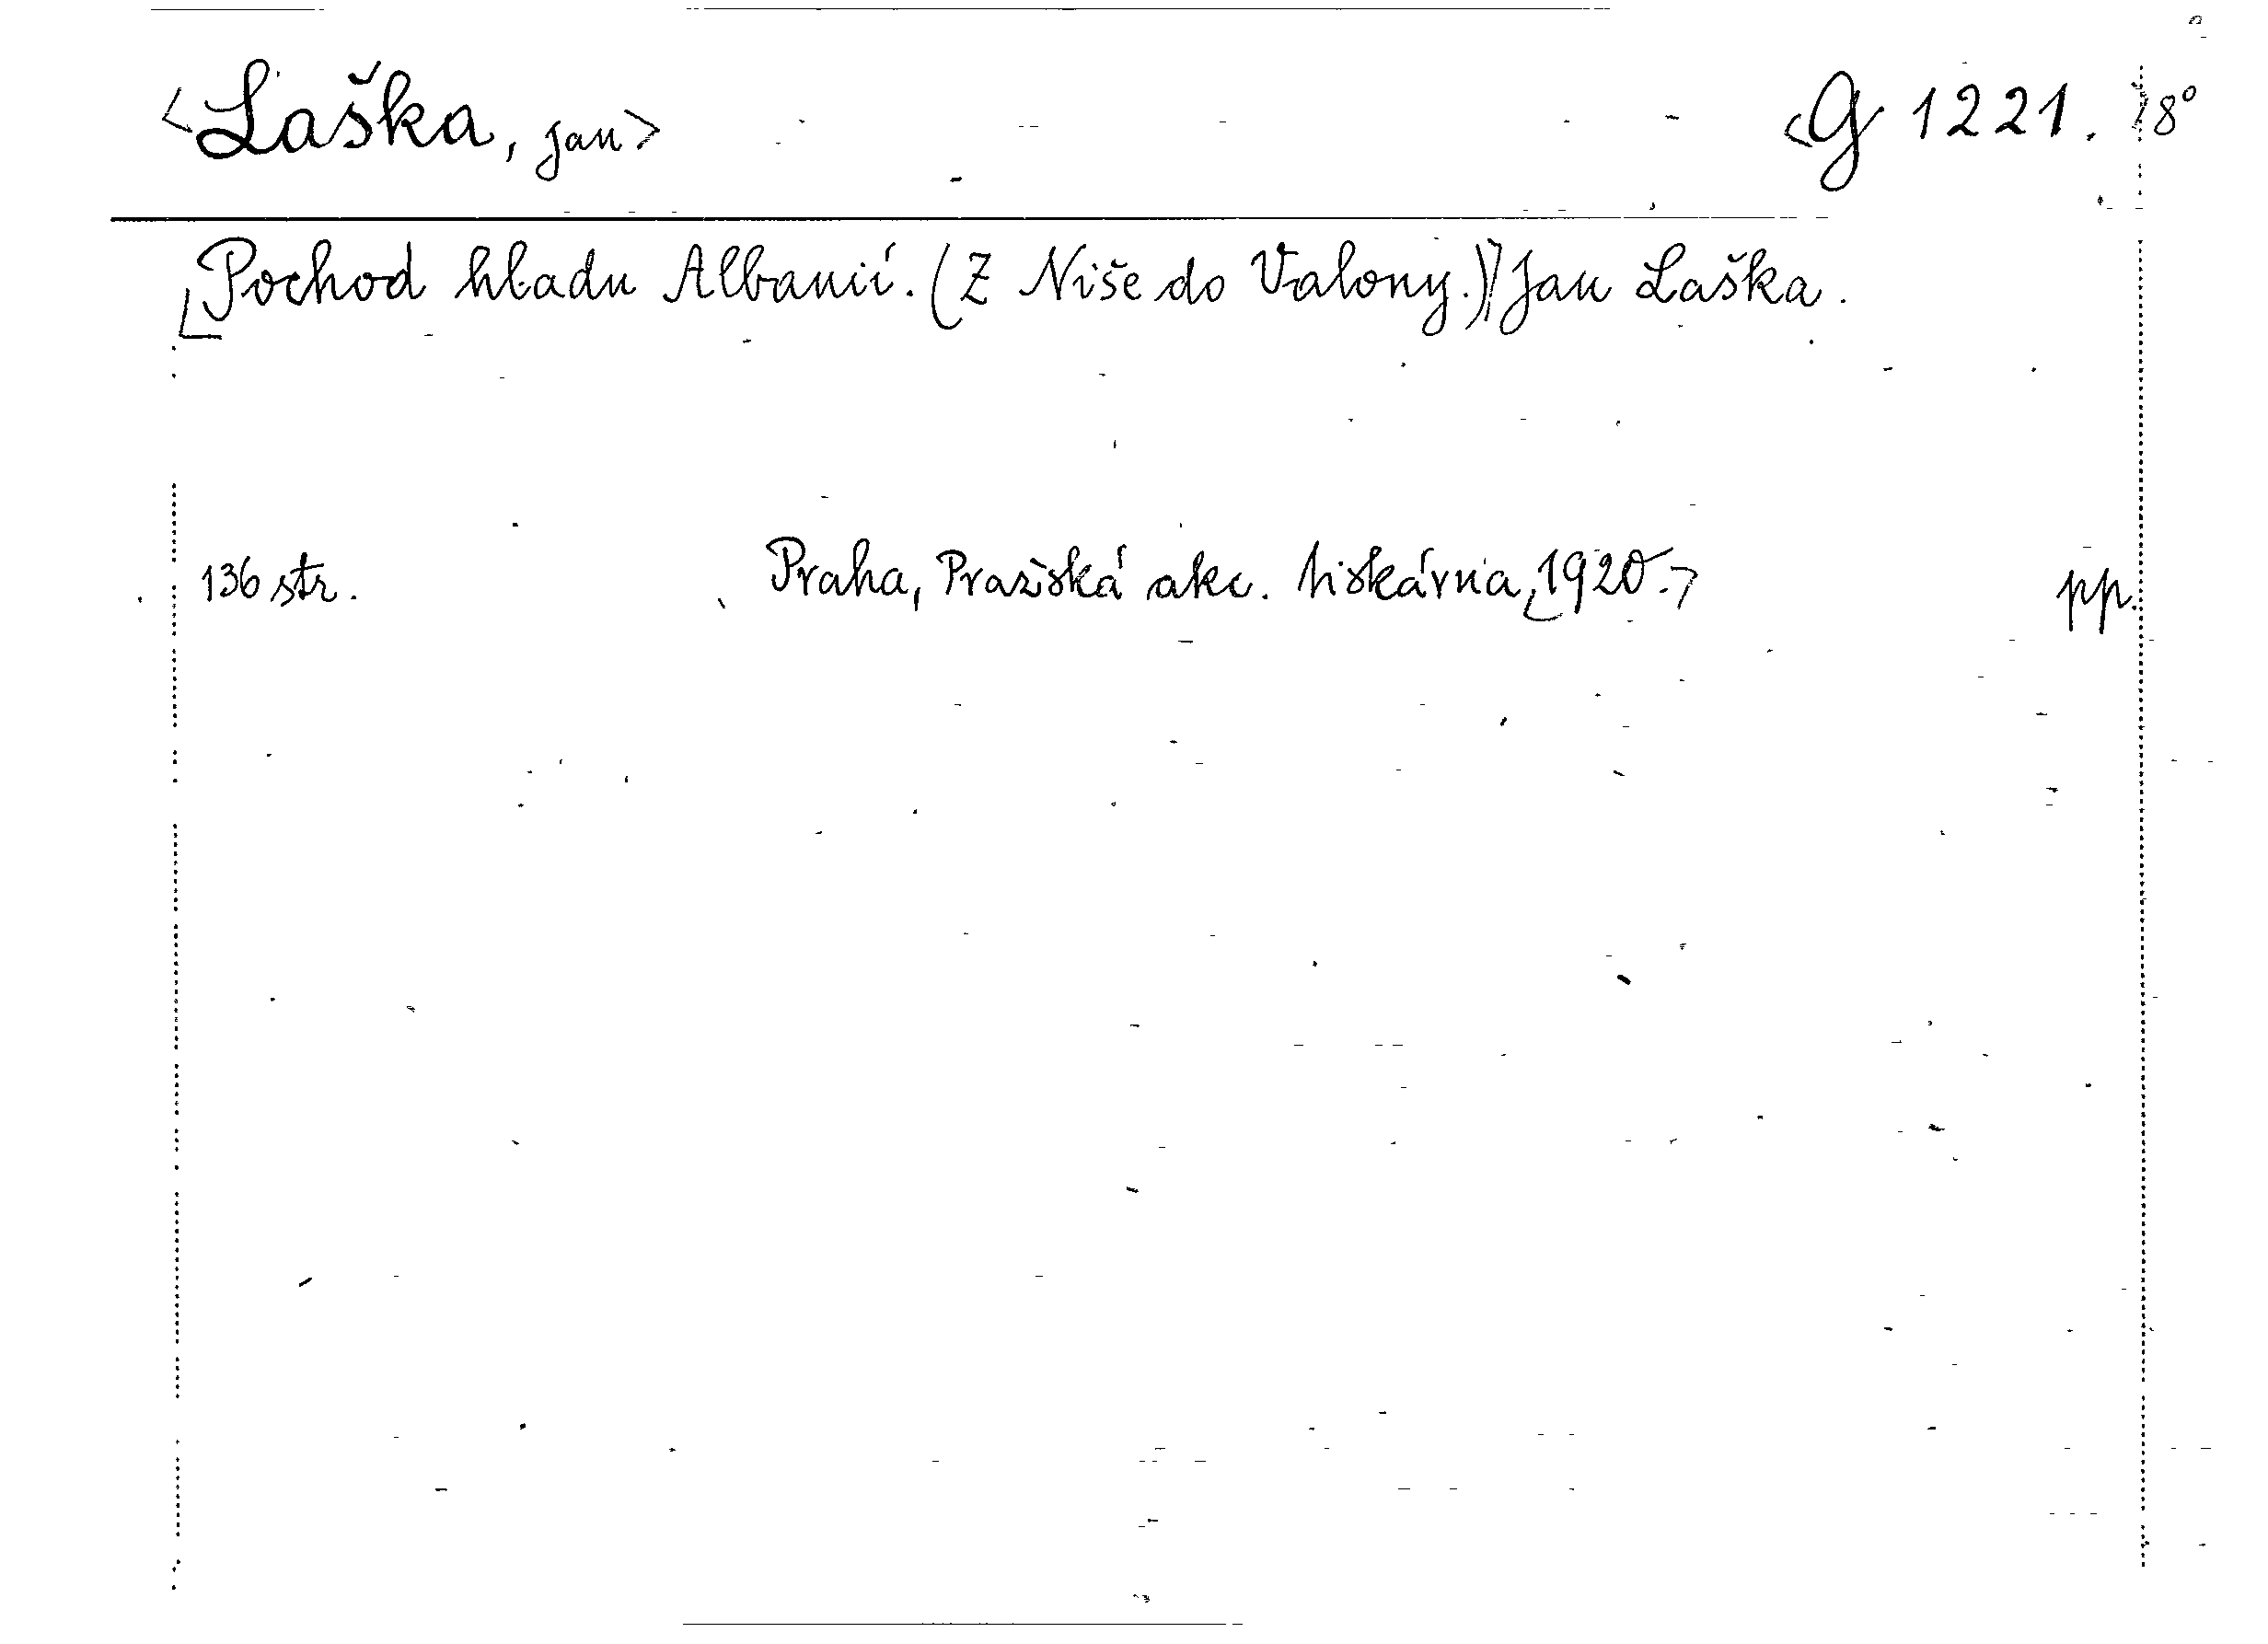 <Laška, Jan> <G 1221.> 8°
[Pochod hladu Albanií. (Z Niše do Valony.)] Jan Laška.
136 str. Praha, Pražská akc. tiskárna, 1920. pp.